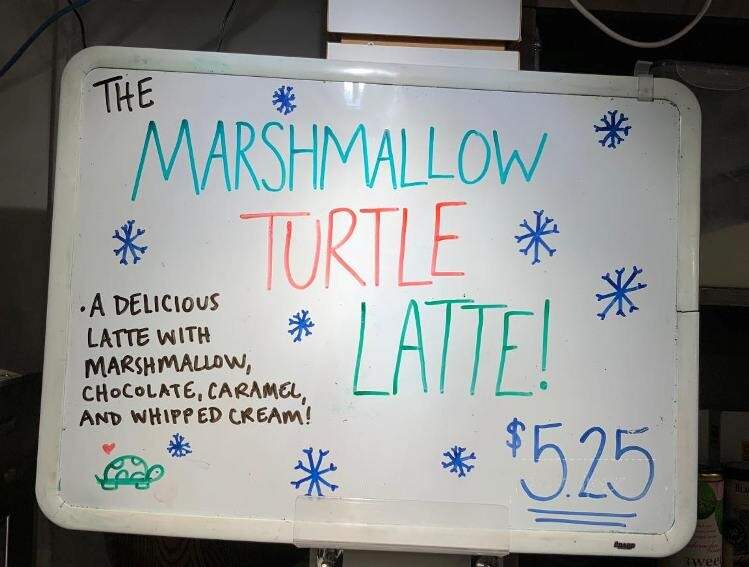 THE
MARSHMALLOW
TURTLE
LATTE!
·A DELICIOUS
LATTE WITH
MARSHMALLOW,
CHOCOLATE, CARAMEL,
AND WHIPPED CREAM!
$5.25